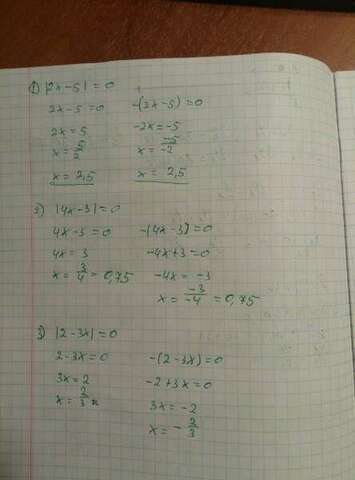 1) |2x-5| = 0
2x-5 = 0    -(2x-5) = 0
2x = 5    -2x = -5
x = 5/2    x = -5/-2
x = 2,5    x = 2,5
2) |4x-3| = 0
4x-3 = 0    -(4x-3) = 0
4x = 3    -4x+3 = 0
x = 3/4 = 0,75    -4x = -3
x = -3/-4 = 0,75
3) |2-3x| = 0
2-3x = 0    -(2-3x) = 0
3x = 2    -2+3x = 0
x = 2/3    3x = -2
x = -2/3